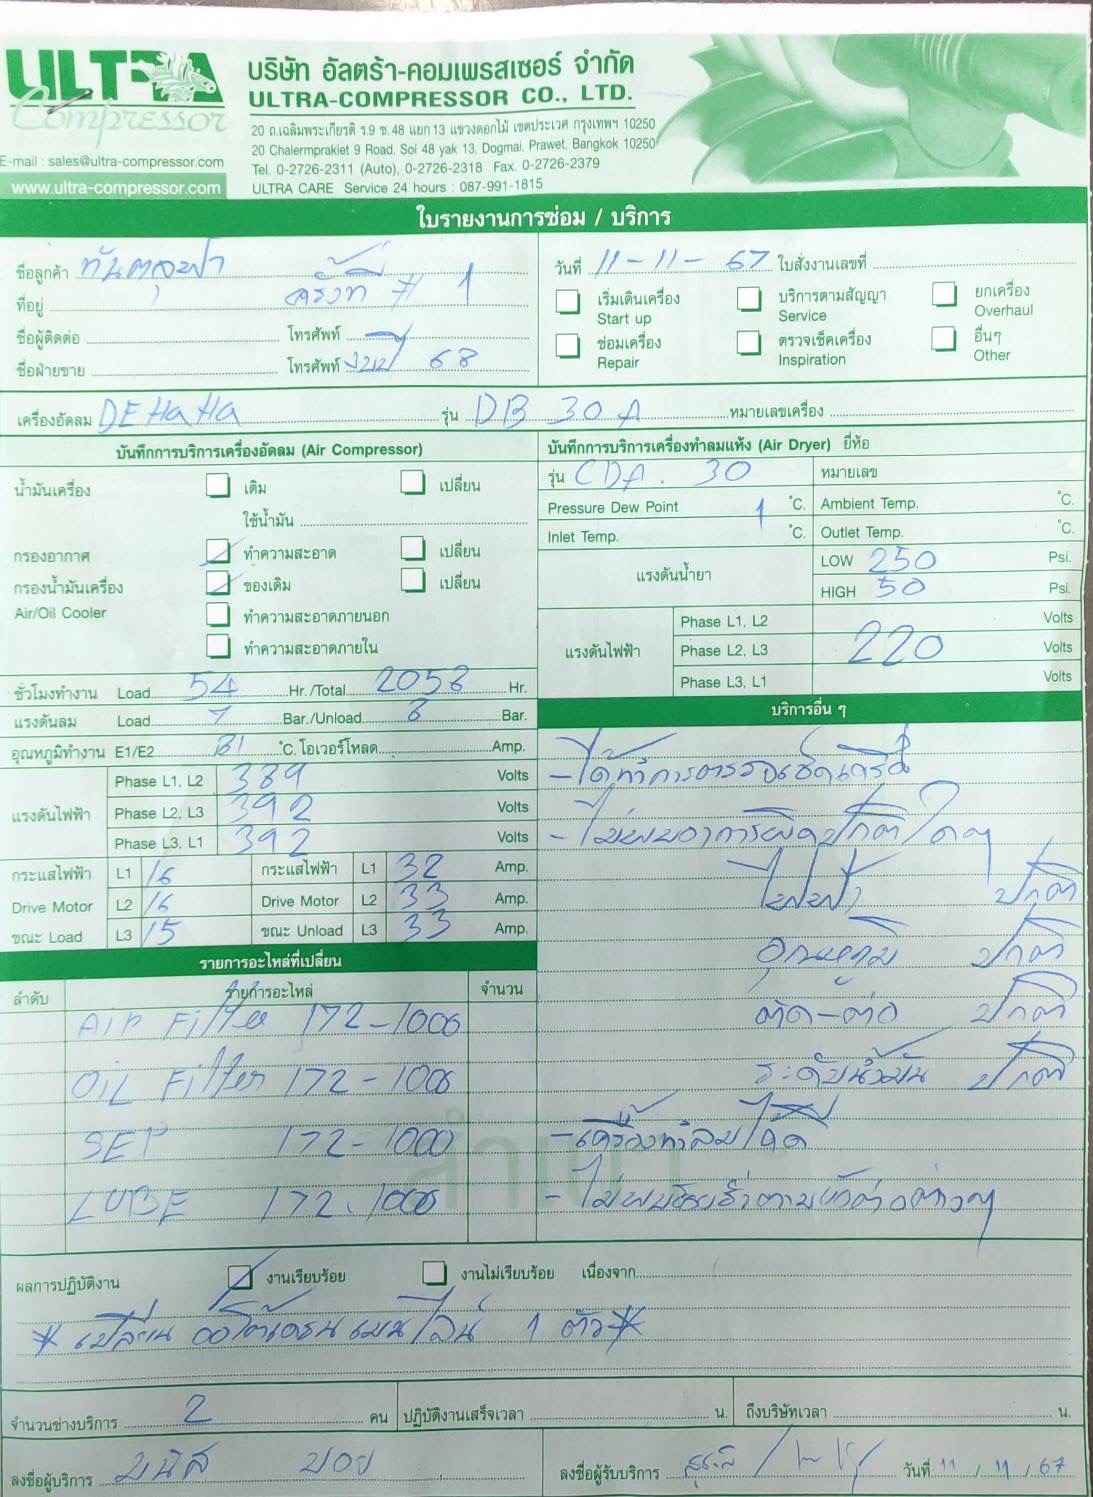 ULTRA
Compressor
บริษัท อัลตร้า-คอมเพรสเซอร์ จำกัด
ULTRA-COMPRESSOR CO., LTD.
20 ถ.เฉลิมพระเกียรติ ร.9 ซ.48 แยก 13 แขวงดอกไม้ เขตประเวศ กรุงเทพฯ 10250
20 Chalermprakiet 9 Road, Soi 48 yak 13, Dogmai, Prawet, Bangkok 10250
Tel. 0-2726-2311 (Auto), 0-2726-2318 Fax. 0-2726-2379
ULTRA CARE Service 24 hours : 087-991-1815
E-mail : sales@ultra-compressor.com
www.ultra-compressor.com
ใบรายงานการซ่อม / บริการ
ชื่อลูกค้า
ครั้งที่ # 1
ที่อยู่
ชื่อผู้ติดต่อ โทรศัพท์
ชื่อฝ่ายขาย โทรศัพท์ งบปี 68
วันที่ 11-11-67 ใบสั่งงานเลขที่
เริ่มเดินเครื่อง บริการตามสัญญา ยกเครื่อง
Start up Service Overhaul
ซ่อมเครื่อง ตรวจเช็คเครื่อง อื่นๆ
Repair Inspiration Other
เครื่องอัดลม รุ่น DB 30 A หมายเลขเครื่อง
บันทึกการบริการเครื่องอัดลม (Air Compressor)
น้ำมันเครื่อง เติม เปลี่ยน
ใช้น้ำมัน
กรองอากาศ ทำความสะอาด เปลี่ยน
กรองน้ำมันเครื่อง ของเดิม เปลี่ยน
Air/Oil Cooler ทำความสะอาดภายนอก
ทำความสะอาดภายใน
ชั่วโมงทำงาน Load 54 Hr./Total 2058 Hr.
แรงดันลม Load 7 Bar./Unload 8 Bar.
อุณหภูมิทำงาน E1/E2 81 °C. โอเวอร์โหลด Amp.
แรงดันไฟฟ้า
Phase L1, L2 389 Volts
Phase L2, L3 392 Volts
Phase L3, L1 392 Volts
กระแสไฟฟ้า L1 16 กระแสไฟฟ้า L1 32 Amp.
Drive Motor L2 16 Drive Motor L2 33 Amp.
ขณะ Load L3 15 ขณะ Unload L3 33 Amp.
บันทึกการบริการเครื่องทำลมแห้ง (Air Dryer) ยี่ห้อ
รุ่น CDA. 30 หมายเลข
Pressure Dew Point 1 °C. Ambient Temp. °C.
Inlet Temp. °C. Outlet Temp. °C.
แรงดันน้ำยา
LOW 250 Psi.
HIGH 50 Psi.
แรงดันไฟฟ้า
Phase L1, L2 Volts
Phase L2, L3 220 Volts
Phase L3, L1 Volts
บริการอื่น ๆ
- ได้ทำการตรวจเช็คเครื่อง
- ไม่พบอาการผิดปกติใดๆ
ไฟฟ้า ปกติ
อุณหภูมิ ปกติ
ตัด-ต่อ ปกติ
ระดับน้ำมัน ปกติ
- เครื่องทำลมได้ดี
- ไม่พบรอยรั่วตามข้อต่อต่างๆ
รายการอะไหล่ที่เปลี่ยน
ลำดับ รายการอะไหล่ จำนวน
Air Filter 172-1006
OIL Filter 172-1006
SEP 172-1000
LUBE 172-1006
สำเนา
ผลการปฏิบัติงาน งานเรียบร้อย งานไม่เรียบร้อย เนื่องจาก
* เปลี่ยน ออโต้เดรน เมนไลน์ 1 ตัว *
จำนวนช่างบริการ 2 คน ปฏิบัติงานเสร็จเวลา น. ถึงบริษัทเวลา น.
ลงชื่อผู้บริการ มนัส บอย
ลงชื่อผู้รับบริการ วันที่ 11 / 11 / 67